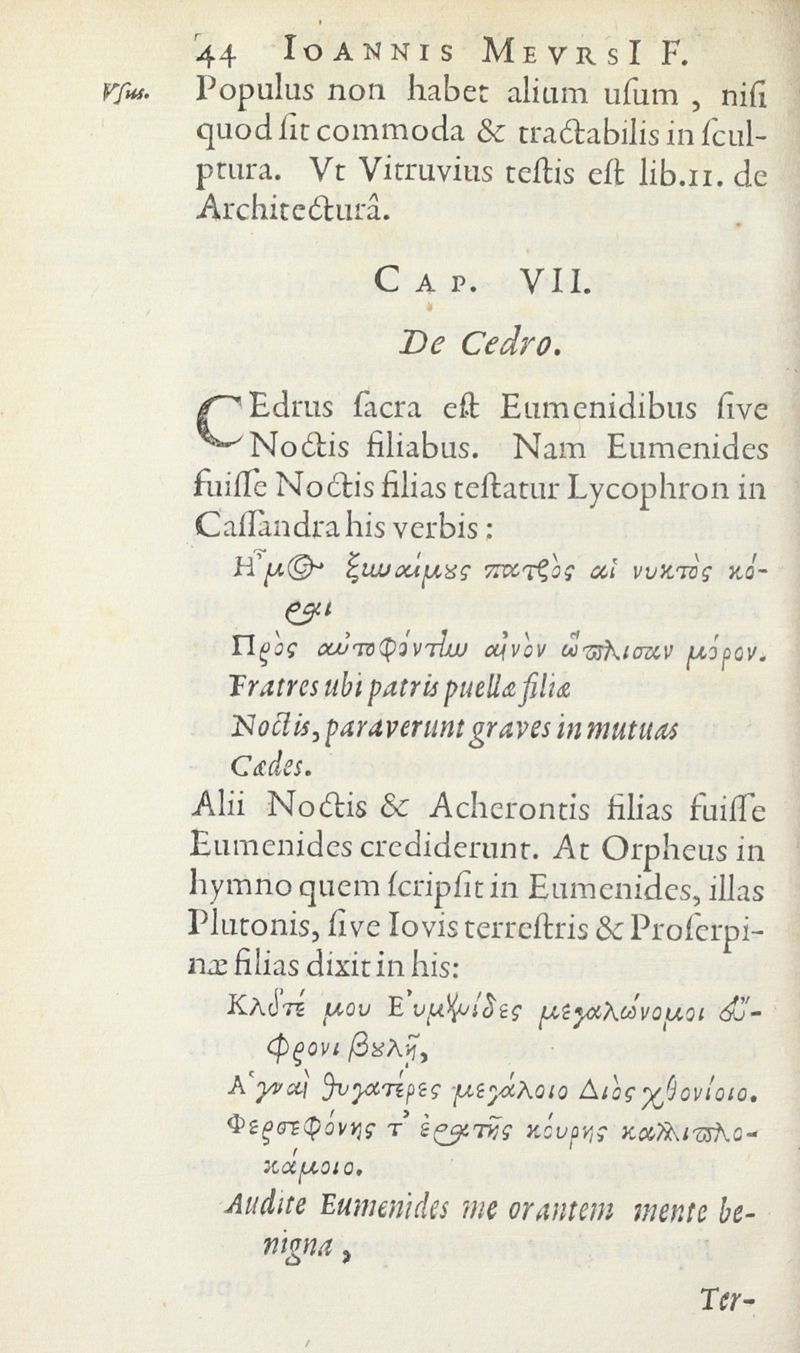 44 IOANNIS MEVRSI F.
Vſus.
Populus non habet alium uſum , niſi
quod ſit commoda & tractabilis in ſcul-
ptura. Vt Vitruvius teſtis eſt lib.11. de
Architecturâ.
CAP. VII.
De Cedro.
CEdrus ſacra eſt Eumenidibus ſive
Noctis filiabus. Nam Eumenides
fuiſſe Noctis filias teſtatur Lycophron in
Caſſandra his verbis :
Η῏μος ξυναίμους πατρὸς αἱ νυκτὸς κό-
ραι
Πρὸς αὐτοφόντην αἰνὸν ὥπλισαν μόρον.
Fratres ubi patris puellæ filiæ
Noctis, paraverunt graves in mutuas
Cædes.
Alii Noctis & Acherontis filias fuiſſe
Eumenides crediderunt. At Orpheus in
hymno quem ſcripſit in Eumenides, illas
Plutonis, ſive Iovis terreſtris & Proſerpi-
næ filias dixit in his:
Κλῦτέ μου Ε᾽υμενίδες μεγαλώνομοι εὔ-
φρονι βουλῇ,
Α῾γναὶ θυγατέρες μεγάλοιο Διὸς χθονίοιο.
Φερσεφόνης τ᾽ ἐρατῆς κούρης καλλιπλο-
κάμοιο.
Audite Eumenides me orantem mente be-
nigna ,
Ter-